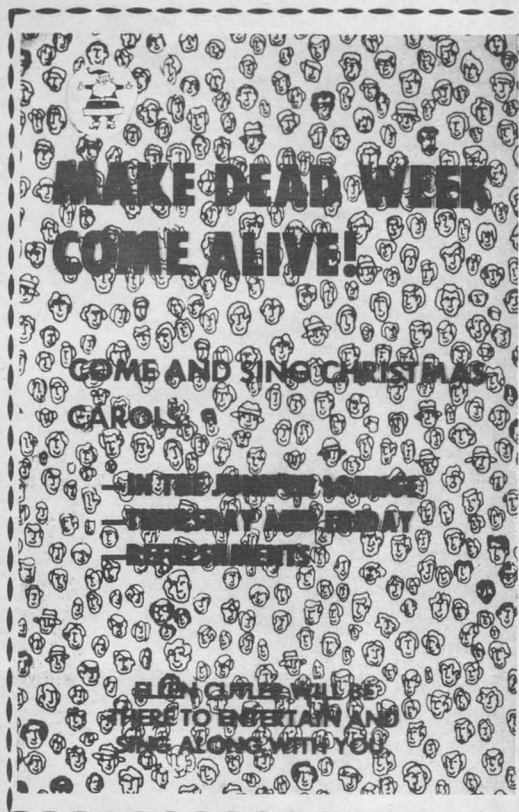 MAKE DEAD WEEK
COME ALIVE!
COME AND SING CHRISTMAS
CAROLS:
—IN THE LOUNGE
—THURSDAY AND FRIDAY
—REFRESHMENTS
ELLEN CUTLER WILL BE
THERE TO ENTERTAIN AND
SING ALONG WITH YOU